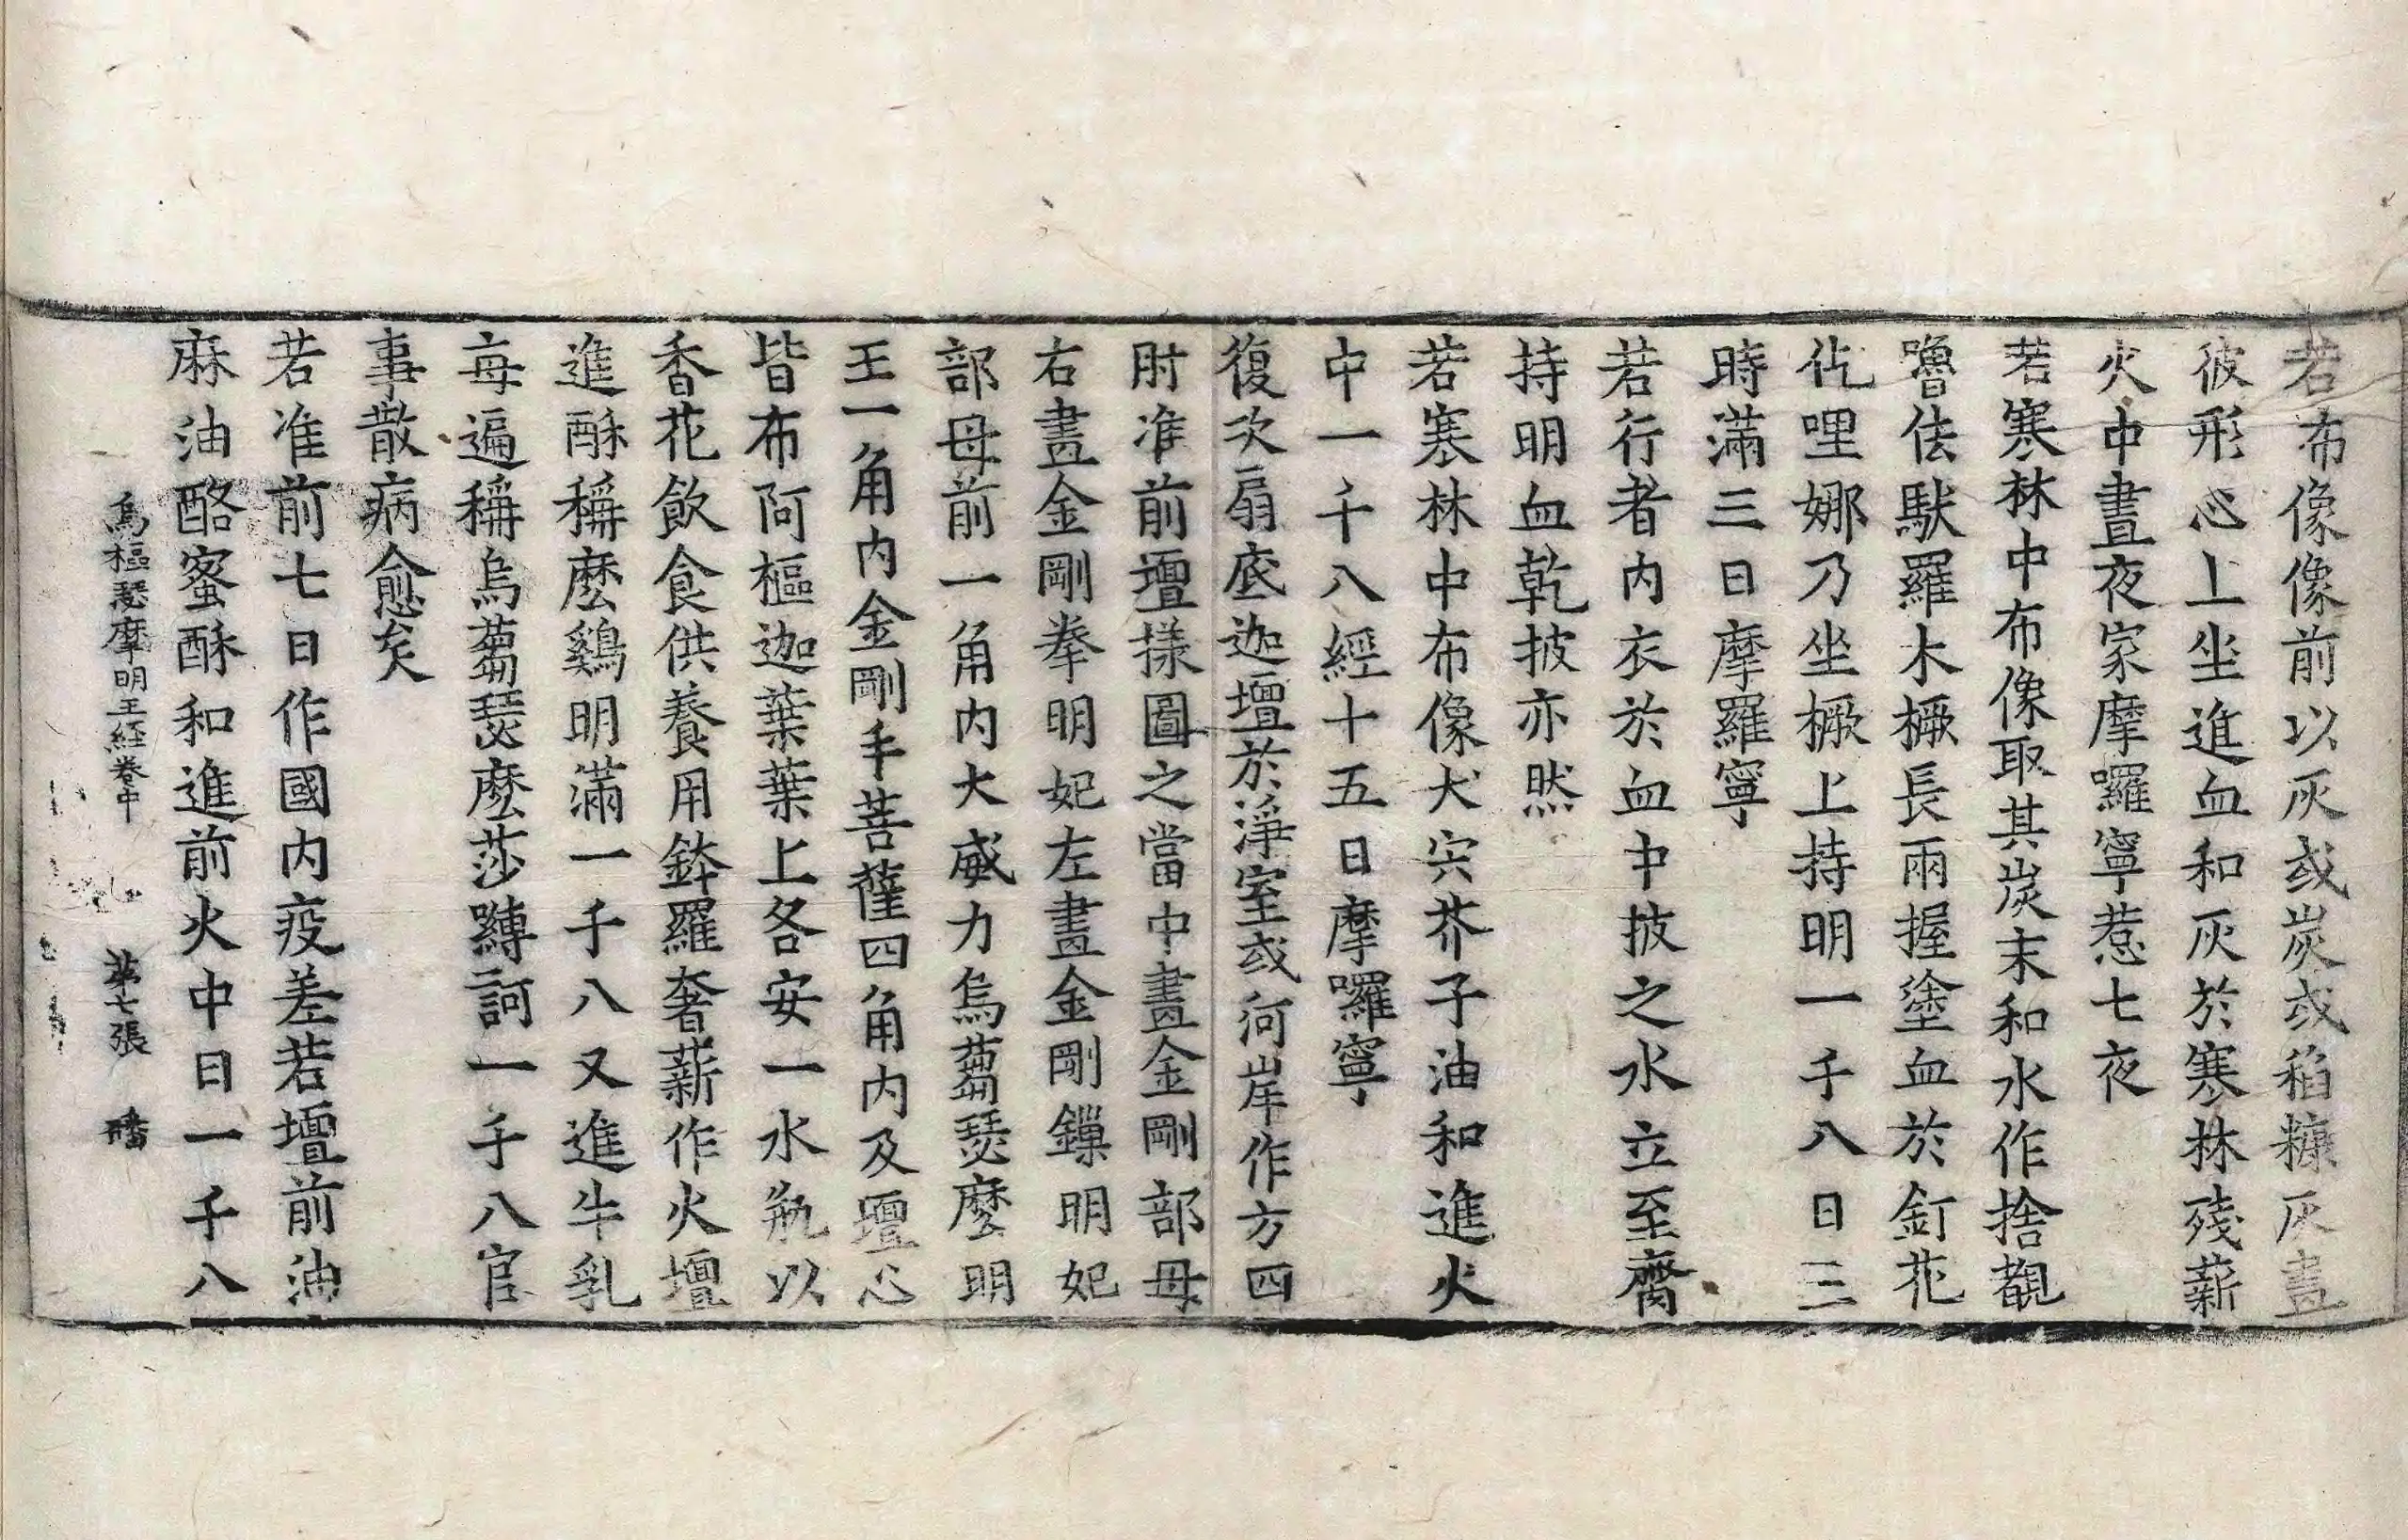 若布像像前以灰或炭或稻糠灰畫
彼形心上坐進血和灰於寒林殘薪
火中晝夜家摩囉寧惹七夜
若寒林中布像取其炭末和水作捨覩
嚕佉馱羅木橛長兩握塗血於釘花
仡哩娜乃坐橛上持明一千八日三
時滿三日摩羅寧
若行者內衣於血中披之水立至齊
持明血乾披亦然
若寒林中布像犬宍芥子油和進火
中一千八經十五日摩囉寧
復次扇底迦壇於淨室或河岸作方四
肘准前壇㨾圖之當中畫金剛部母
右畫金剛拳明妃左畫金剛鏁明妃
部母前一角內大威力烏蒭瑟麼明
王一角內金剛手菩薩四角內及壇心
皆布阿樞迦葉葉上各安一水瓶以
香花飲食供養用鉢羅奢薪作火壇
進酥稱麼鷄明滿一千八又進牛乳
每遍稱烏蒭瑟麽莎嚩二訶一千八官
事散病愈矣
若准前七日作國內疫差若壇前油
麻油酪蜜酥和進前火中日一千八
烏樞瑟摩明王経卷中 第七張 𥻘